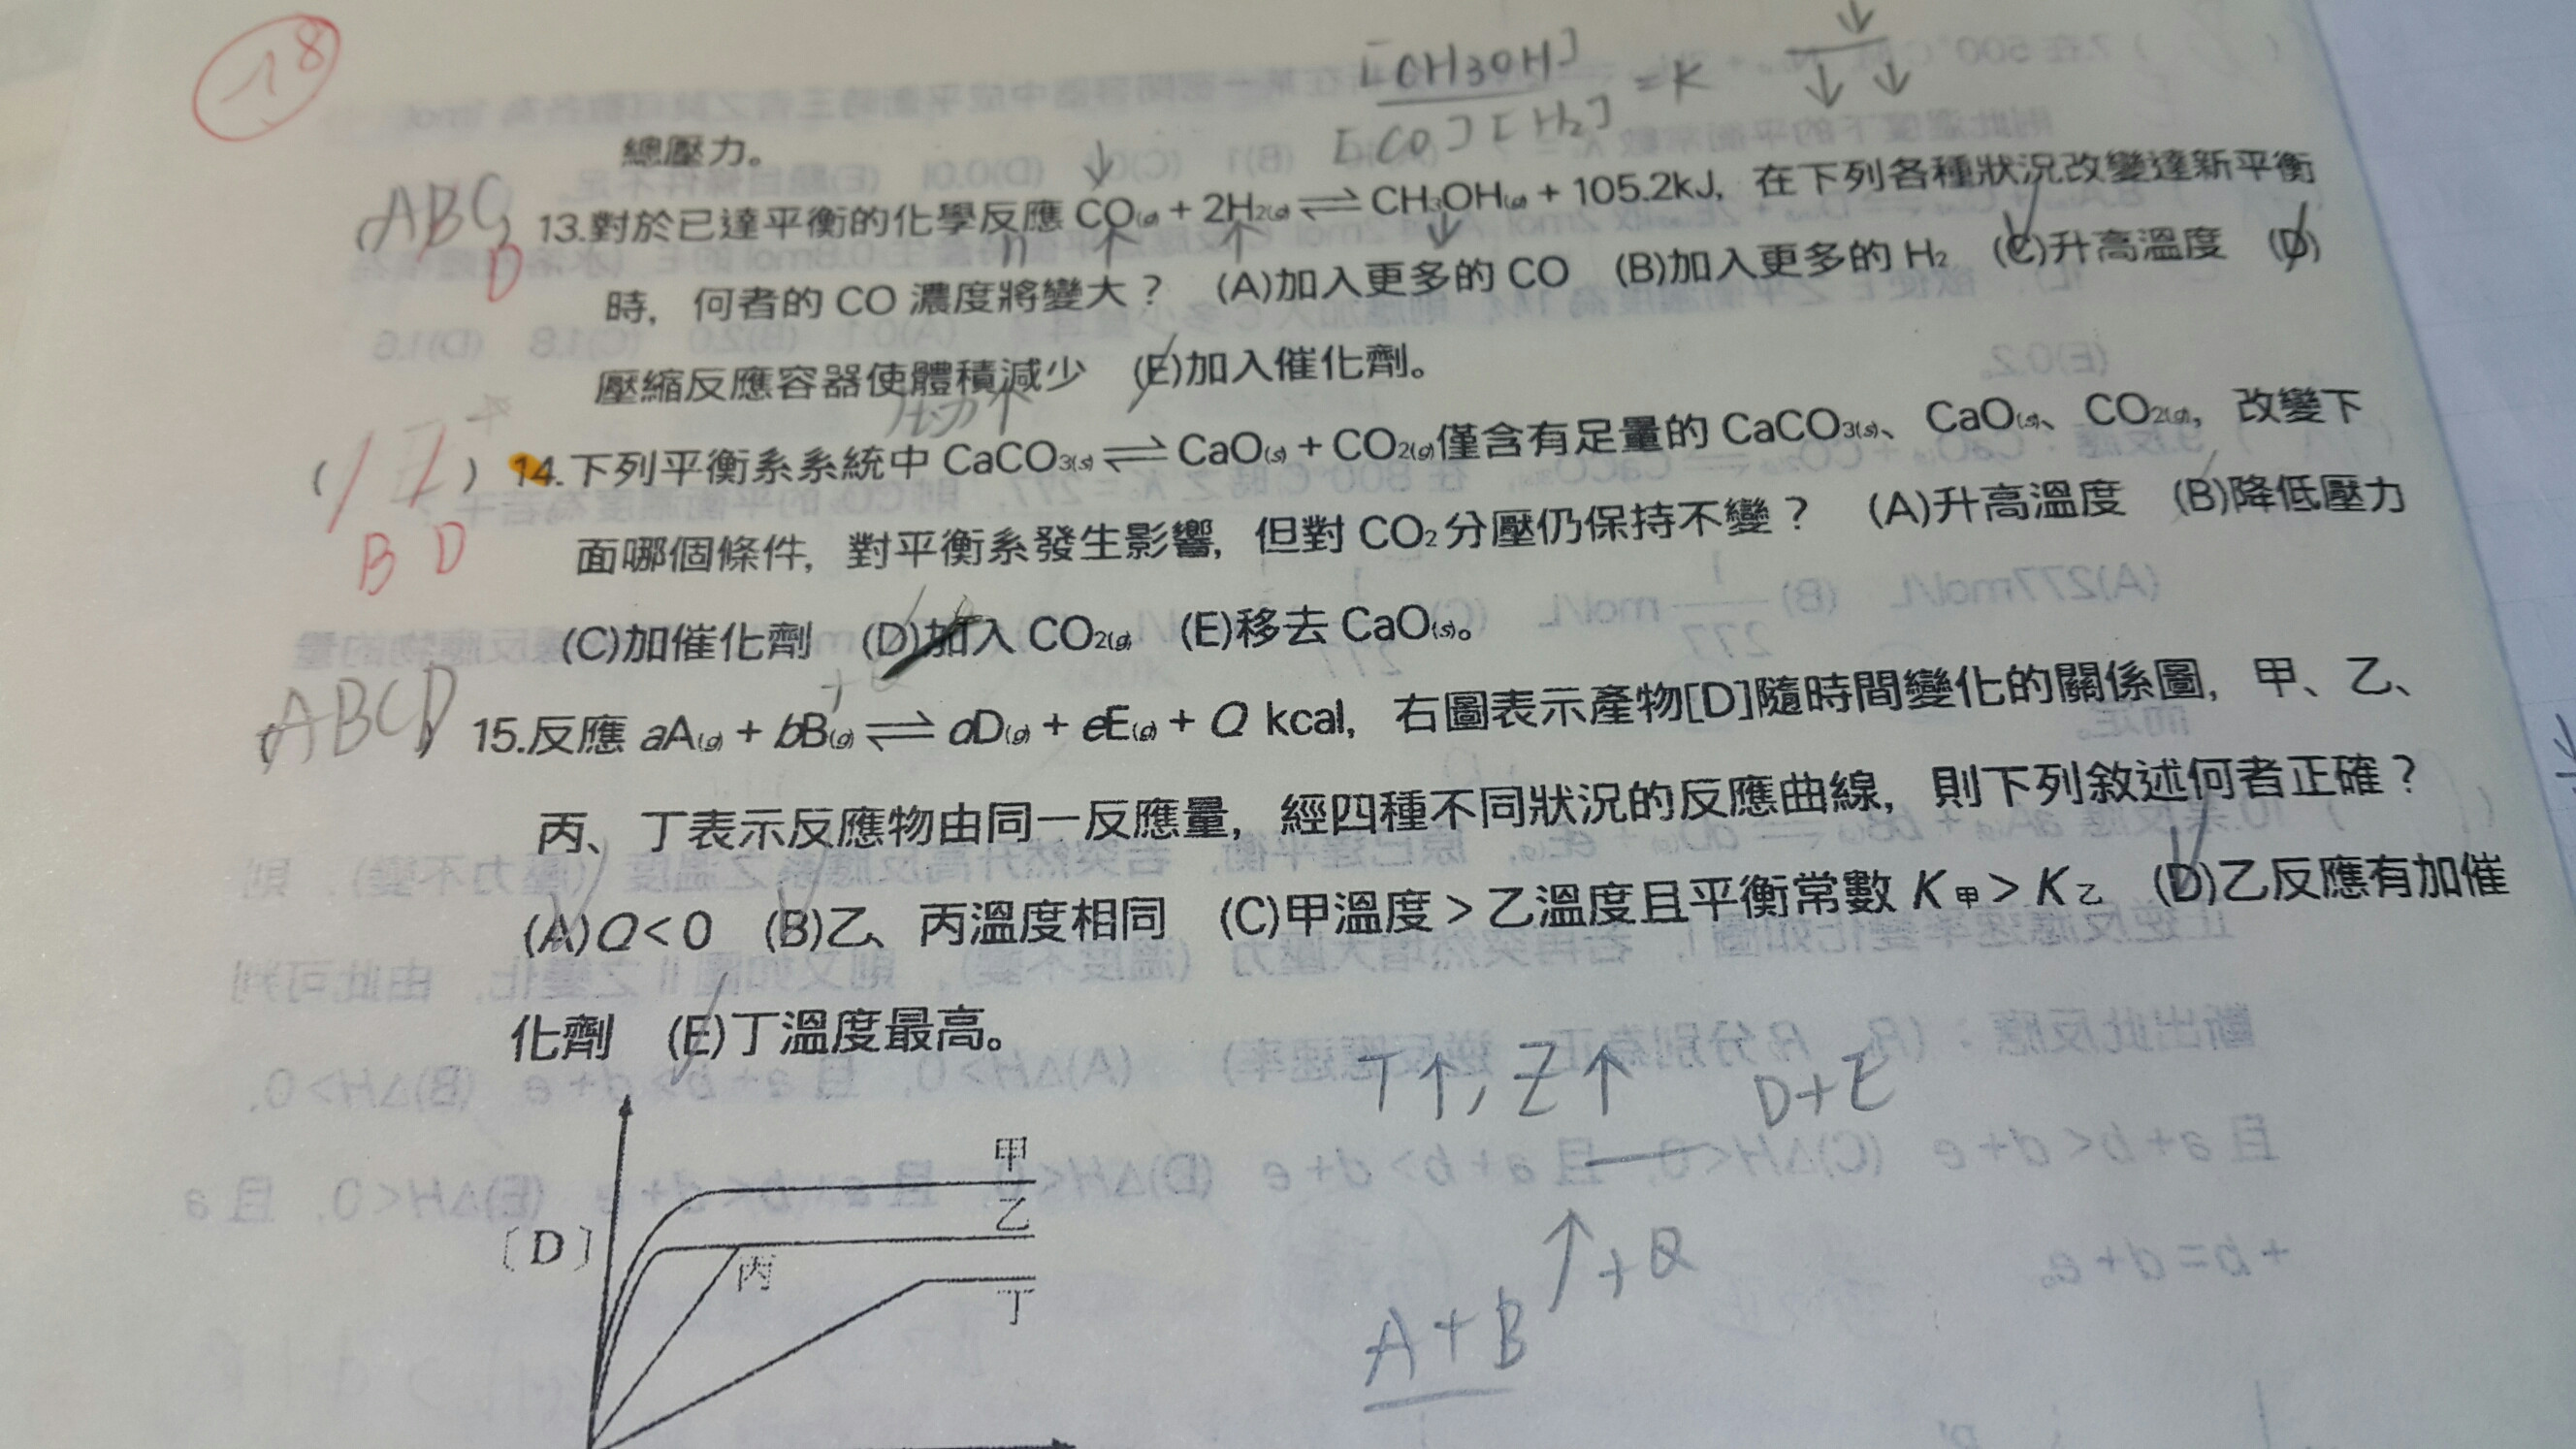 -18
[CH3OH]
[CO][H2]
=K
總壓力。
ABC
D
13.對於已達平衡的化學反應 CO(g) + 2H2(g) ⇌ CH3OH(g) + 105.2kJ, 在下列各種狀況改變達新平衡
時, 何者的 CO 濃度將變大? (A)加入更多的 CO (B)加入更多的 H2 (C)升高溫度 (D)
壓縮反應容器使體積減少 (E)加入催化劑。
壓力↑
( ) 14.下列平衡系系統中 CaCO3(s) ⇌ CaO(s) + CO2(g)僅含有足量的 CaCO3(s)、CaO(s)、CO2(g), 改變下
B D
面哪個條件, 對平衡系發生影響, 但對 CO2 分壓仍保持不變? (A)升高溫度 (B)降低壓力
(C)加催化劑 (D)加入 CO2(g) (E)移去 CaO(s)。
ABCD
15.反應 aA(g) + bB(g) ⇌ dD(g) + eE(g) + Q kcal, 右圖表示產物[D]隨時間變化的關係圖, 甲、乙、
丙、丁表示反應物由同一反應量, 經四種不同狀況的反應曲線, 則下列敘述何者正確?
(A)Q<0 (B)乙、丙溫度相同 (C)甲溫度>乙溫度且平衡常數 K甲> K乙 (D)乙反應有加催
化劑 (E)丁溫度最高。
T↑, Z↑ D+E
↑+Q
A+B
[D]
甲
乙
丙
丁